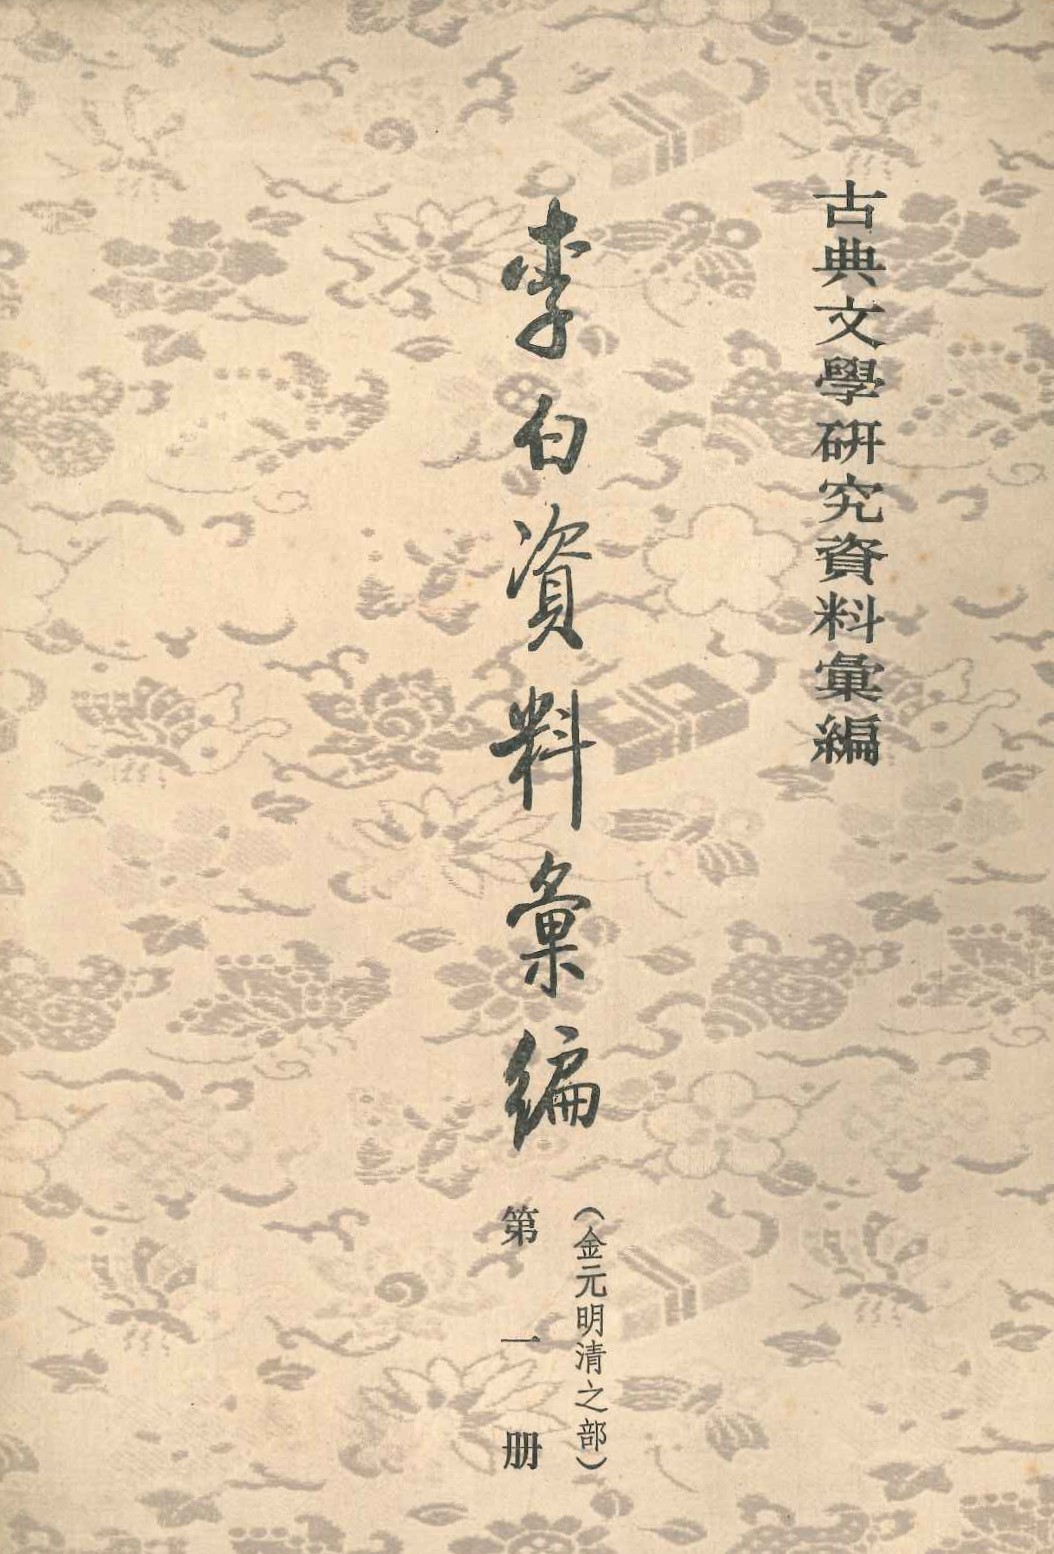 古典文學研究資料彙編
李白資料彙編
（金元明清之部）
第一册